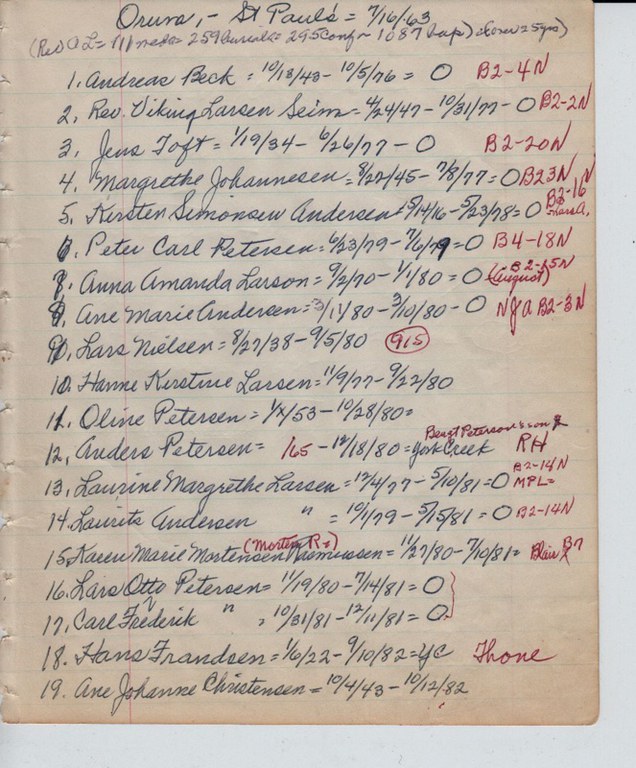 Orum, - St Paul's = 7/16/63
(Rev O L = 111 meds = 259 burials = 295 conf ~ 1087 bap) 5 yrs)
1. Andreas Beck = 10/18/43 - 10/5/76 = O B2-4N
2. Rev. Viking Larsen Seim = 4/24/47 - 10/31/77 - O B2-2N
3. Jens Toft = 1/19/34 - 6/26/77 - O B2-20N
4. Margrethe Johannesen = 8/27/45 - 7/8/77 = O B23N N
5. Kirsten Simonsen Andersen = 5/14/16 - 5/23/78 = O B2-16
6. Peter Carl Petersen = 6/23/79 - 7/6/79 = O B4-18N
8. Anna Amanda Larson = 9/2/70 - 1/1/80 = O B2-15N (August)
9. Ane Marie Andersen = 3/1/80 - 3/10/80 - O NJA B2-3N
10. Lars Nielsen = 8/27/38 - 9/5/80 915
10. Hanne Kirstine Larsen = 11/9/77 - 9/22/80
11. Oline Petersen = 1/x/53 - 10/28/80 =
12. Anders Petersen = 165 - 12/18/80 = York Creek Bengt Peterson's son RH
13. Laurine Margrethe Larsen = 12/4/77 - 5/10/81 = O B2-14N MPL=
14. Laurits Andersen " = 10/1/79 - 5/15/81 = O B2-14N
15. Karen Marie Mortensen (Morten R=) Rasmussen = 11/27/80 - 7/10/81 = Blair B7
16. Lars Otto Petersen = 11/19/80 - 7/14/81 = O
17. Carl Frederik " = 10/31/81 - 12/11/81 = O
18. Hans Frandsen = 1/6/22 - 9/10/82 = YC Thone
19. Ane Johanne Christensen = 10/4/43 - 10/12/82